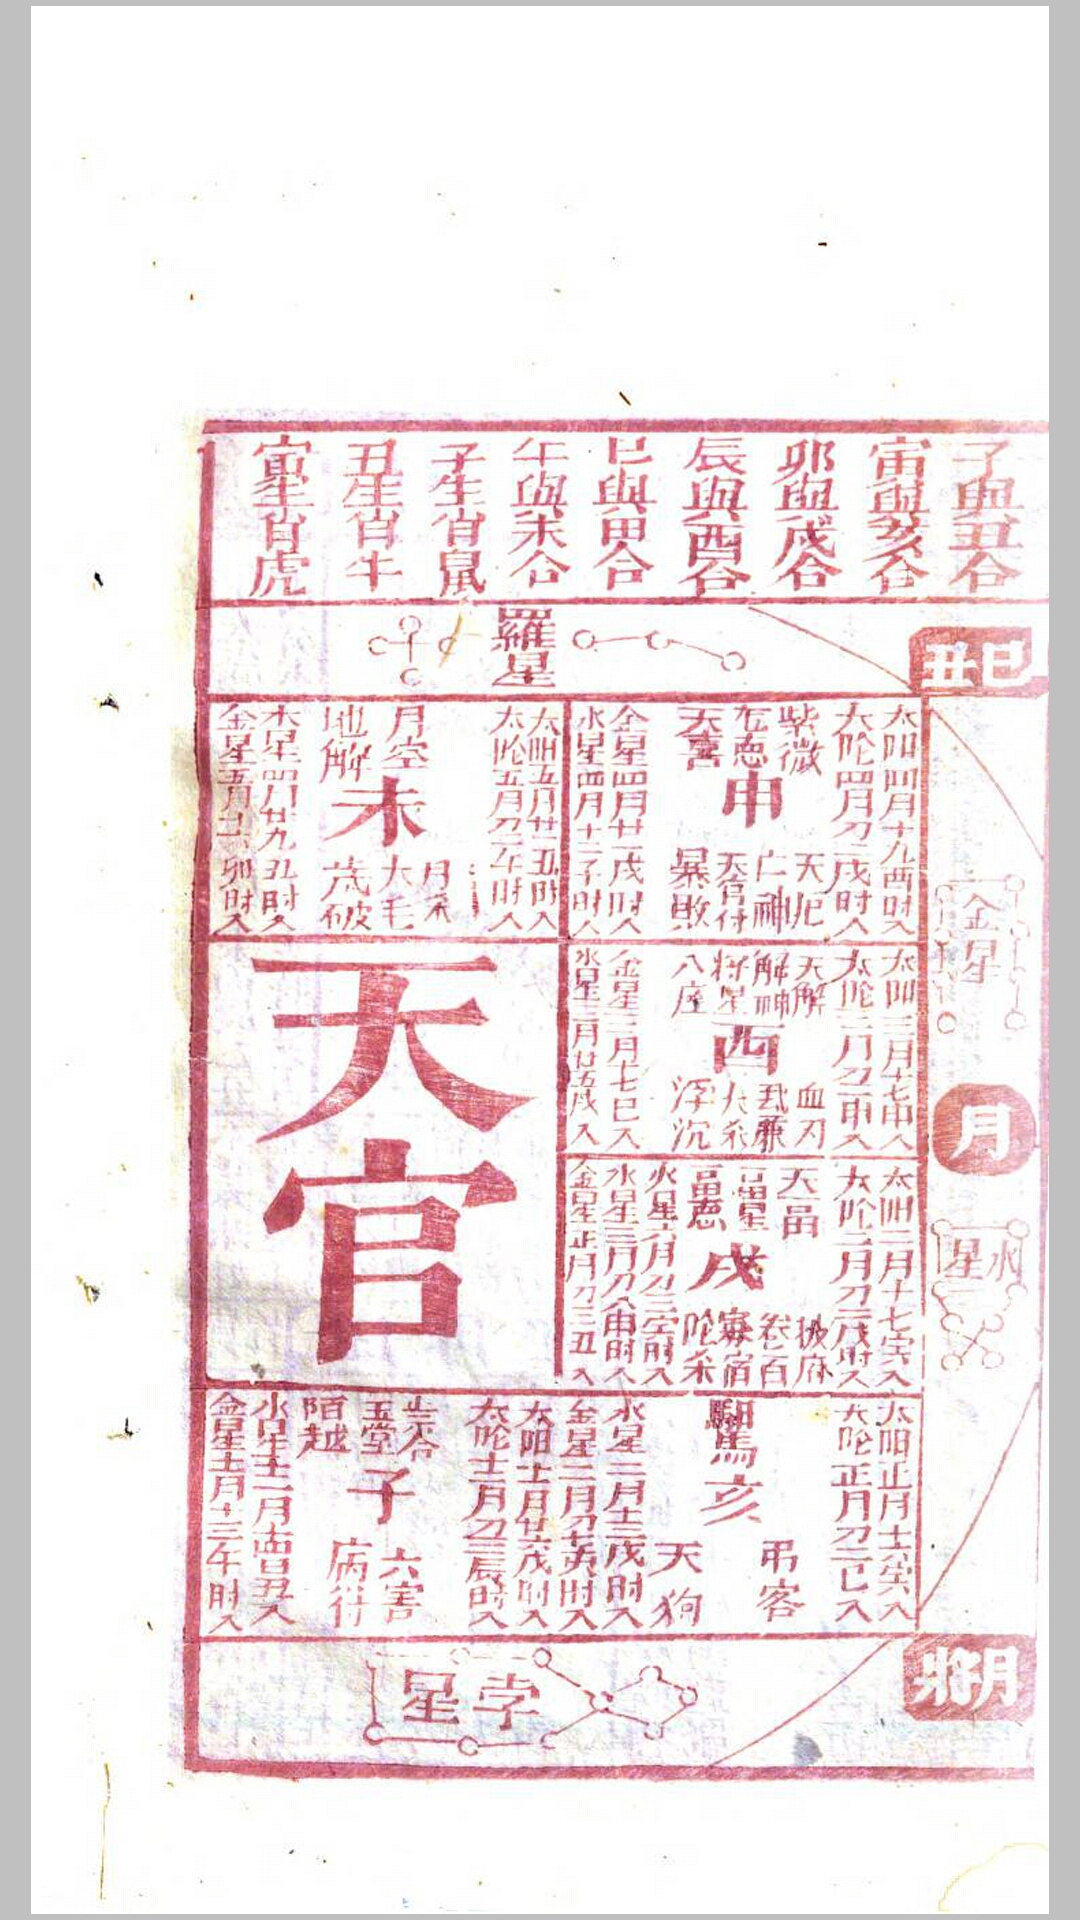 子與丑合
寅與亥合
卯與戌合
辰與酉合
巳與申合
午與未合
子生肖鼠
丑生肖牛
寅生肖虎
羅星
丑巳
金星
月
水星
月將
太阳四月十九酉時入
太阴四月初二戌時入
紫微
天喜
申
天厄
亡神
天官符
暴敗
金星四月廿一戌時入
水星四月十二子時入
太阳五月廿一丑時入
太阴五月初二午時入
月空
地解
未
月杀
大毛
歲破
木星四月廿九丑時入
金星五月廿六卯時入
太阳三月十七申入
太阴三月初一申入
天解
解神
将星
八座
酉
血刃
浮沉
金星三月十七巳入
水星三月廿五戌入
天官
太阳二月十七亥入
太阴二月初二戌時入
戌
披麻
卷舌
寡宿
陀杀
火星六月初三寅時入
水星三月初八申時入
金星正月初三丑入
太阴正月初二巳入
驛馬
亥
弔客
天狗
水星二月十二戌時入
金星二月初七寅時入
太阳十二月廿六戌時入
太阴十二月初二辰時入
玉堂
陌越
子
六害
病符
水星十二月十四日丑入
金星十二月十三午時入
孛星